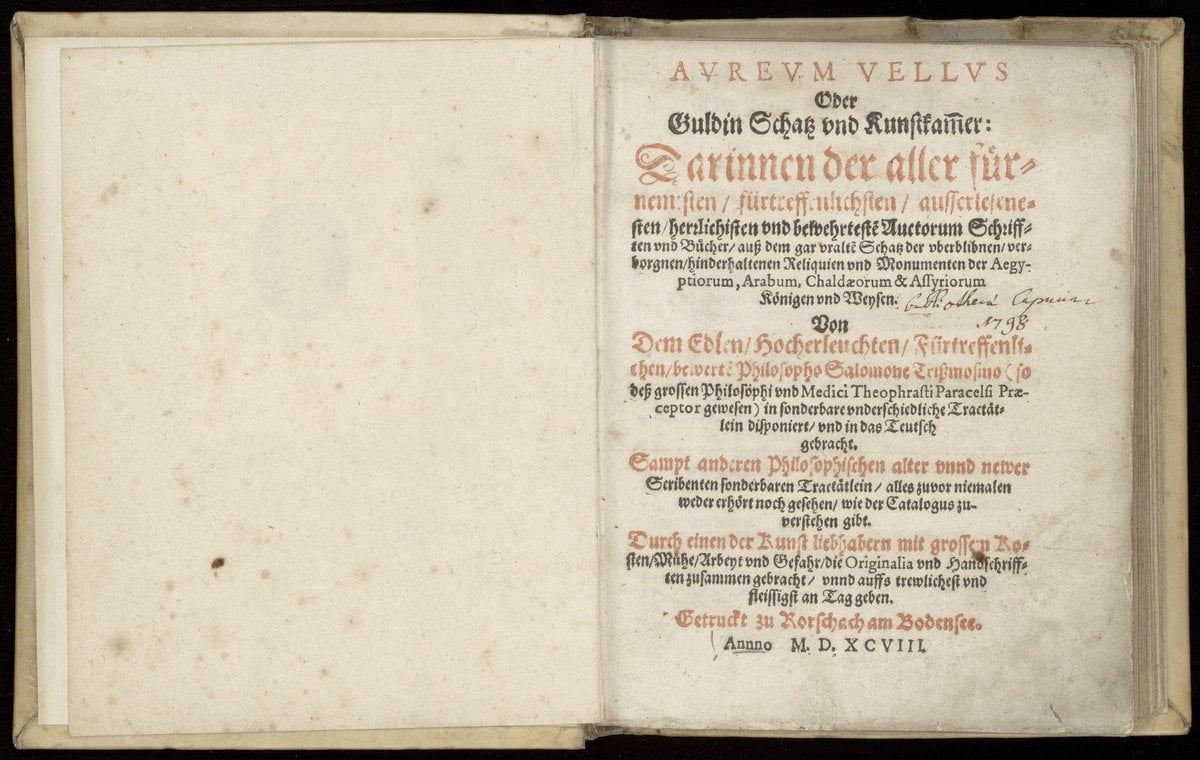 AVREVM VELLVS
Oder
Guldin Schatz vnd Kunstkam̃er:
Darinnen der aller für-
nemisten / fürtreffenlichsten / ausserlesene-
sten / herrlichisten vnd bewehrtestē Auctorum Schriff-
ten vnd Bücher / auß dem gar vraltē Schatz der vberblibnen / ver-
borgnen / hinderhaltenen Reliquien vnd Monumenten der Aegy-
ptiorum, Arabum, Chaldæorum & Assyriorum
Königen vnd Weysen.
bibliothecá
1798
Von
Dem Edlen / Hocherleuchten / Fürtreffenli-
chen / bewertē Philosopho Salomone Trißmosino (so
deß grossen Philosophi vnd Medici Theophrasti Paracelsi Præ-
ceptor gewesen) in sonderbare vnderschiedliche Tractät-
lein disponiert / vnd in das Teutsch
gebracht.
Sampt anderen Philosophischen alter vnnd newer
Scribenten sonderbaren Tractätlein / alles zuvor niemalen
weder erhört noch gesehen / wie der Catalogus zu-
verstehen gibt.
Durch einen der Kunst liebhabern mit grossem Ko-
sten / Mühe / Arbeyt vnd Gefahr / die Originalia vnd Handschriff-
ten zusammen gebracht / vnnd auffs trewlichest vnd
fleissigst an Tag geben.
Getruckt zu Rorschach am Bodensee.
Annno M. D. XCVIII.